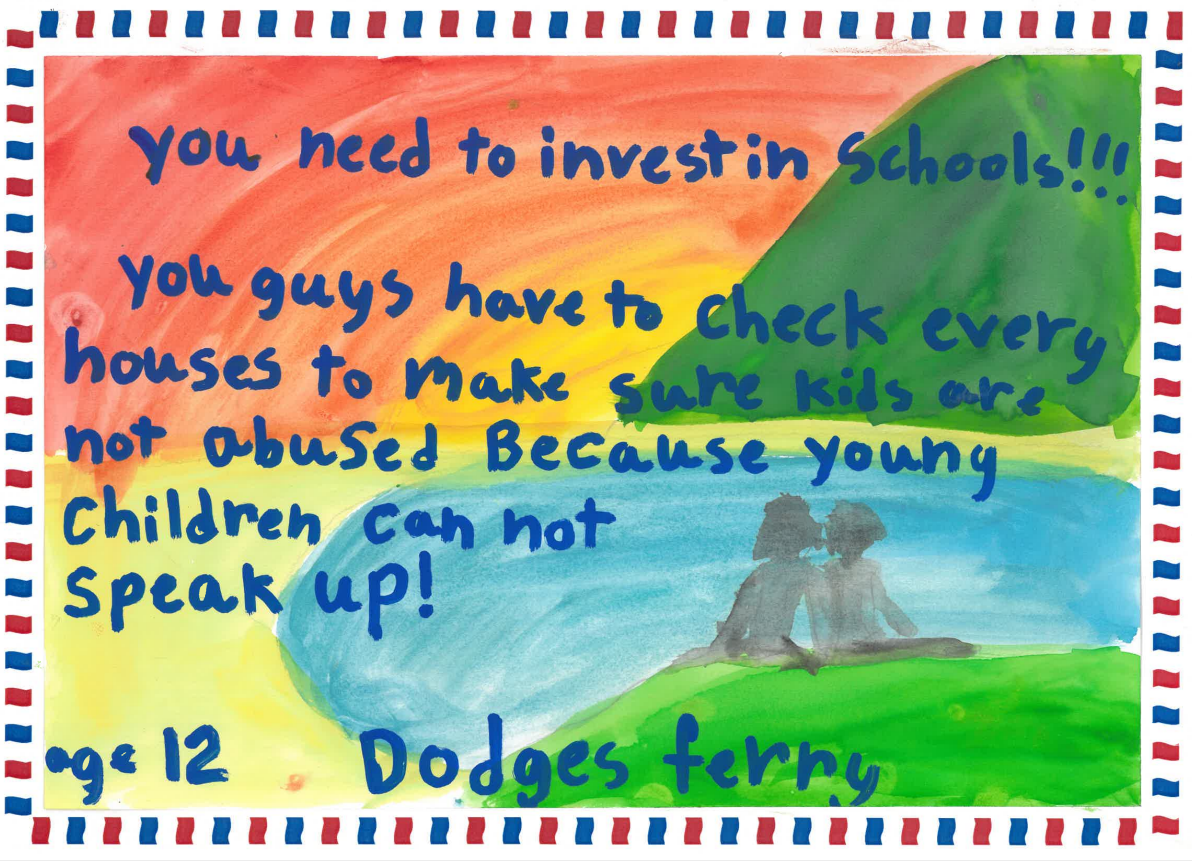 you need to invest in Schools!!!
you guys have to check every
houses to make sure kids are
not abused Because young
Children can not
speak up!
age 12 Dodges ferry